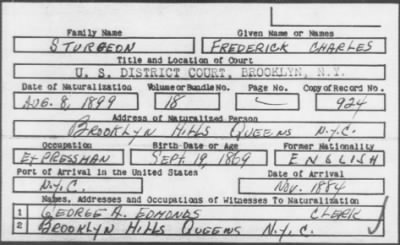 Family Name Given Name or Names
STURGEON FREDERICK CHARLES
Title and Location of Court
U. S. DISTRICT COURT, BROOKLYN, N.Y.
Date of Naturalization Volume or Bundle No. Page No. Copy of Record No.
AUG. 8, 1899 18 924
Address of Naturalized Person
BROOKLYN HILLS QUEENS N.Y.C.
Occupation Birth Date or Age Former Nationality
EXPRESSMAN SEPT. 19, 1869 ENGLISH
Port of Arrival in the United States Date of Arrival
N.Y.C. NOV. 1884
Names, Addresses and Occupations of Witnesses To Naturalization
1 GEORGE A. EDMONDS CLERK
2 BROOKLYN HILLS QUEENS N.Y.C.